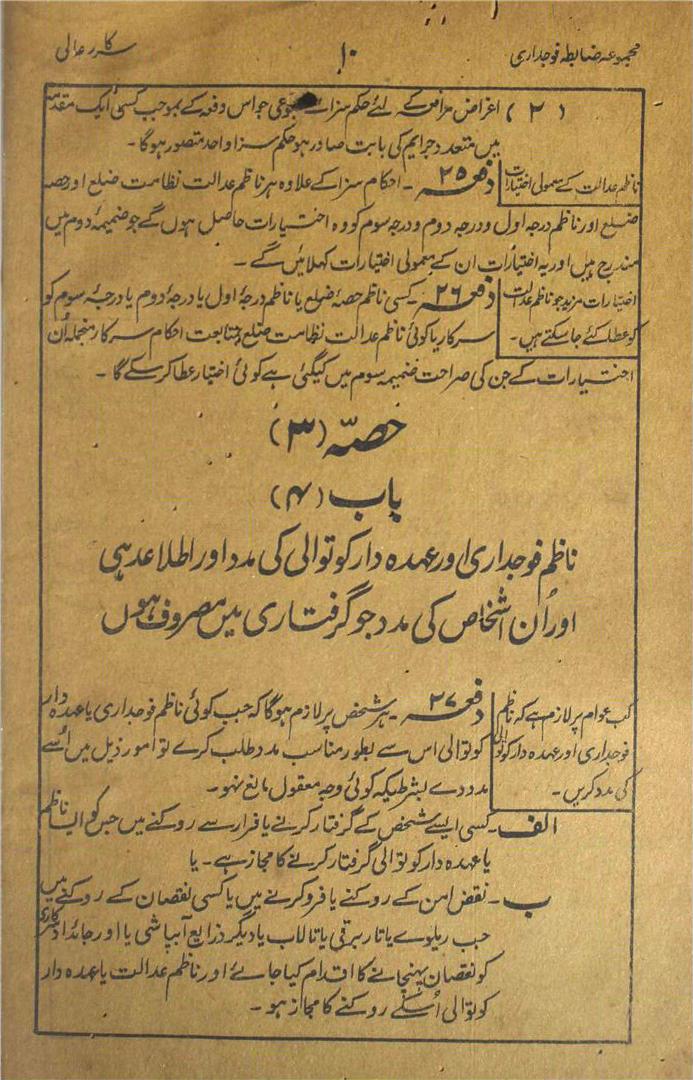 مجموعہ ضابطہ فوجداری
۱۰
سرکار عالی
(۲) اغراض مرافعہ کے لئے حکم سزائے مجموعی جو اس دفعہ کے بموجب کسی ایک مقدمہ
میں متعدد جرایم کی بابت صادر ہو حکم سزا واحد متصور ہوگا۔
ناظم عدالت کے معمولی اختیارات
دفعہ ۲۵۔ احکام سزا کے علاوہ ہر ناظم عدالت نظامت ضلع اور حصہ
ضلع اور ناظم درجہ اول و درجہ دوم و درجہ سوم کو وہ اختیارات حاصل ہوں گے جو ضمیمہ دوم میں
مندرج ہیں اور یہ اختیارات ان کے معمولی اختیارات کہلائیں گے۔
اختیارات مزید جو ناظم عدالت
کو عطا کئے جا سکتے ہیں۔
دفعہ ۲۶۔ کسی ناظم حصہ ضلع یا ناظم درجہ اول یا درجہ دوم یا درجہ سوم کو
سرکار یا کوئی ناظم عدالت نظامت ضلع بمتابعت احکام سرکار منجملہ اُن
اختیارات کے جن کی صراحت ضمیمہ سوم میں کیگئی ہے کوئی اختیار عطا کر سکے گا۔
حصّہ (۳)
باب (۴)
ناظم فوجداری اور عہدہ دار کوتوالی کی مدد اور اطلاعدہی
اور اُن اشخاص کی مدد جو گرفتاری میں مصروف ہوں
کب عوام پر لازم ہے کہ ناظم
فوجداری اور عہدہ دار کوتوالی
کی مدد کریں۔
دفعہ ۲۷۔ ہر شخص پر لازم ہوگا کہ جب کوئی ناظم فوجداری یا عہدہ دار
کوتوالی اس سے بطور مناسب مدد طلب کرے تو امور ذیل میں اُسے
مدد دے بشرطیکہ کوئی وجہ معقول مانع نہو۔
الف۔ کسی ایسے شخص کے گرفتار کرنے یا فرار سے روکنے میں جس کو ایسا ناظم
یا عہدہ دار کوتوالی گرفتار کرنے کا مجاز ہے۔ یا
ب۔ نقض امن کے روکنے یا فرو کرنے میں یا کسی نقصان کے روکنے میں
جب ریلوے یا تار برقی یا تالاب یا دیگر ذرایع آبپاشی یا اور جائداد سرکاری
کو نقصان پہنچانے کا اقدام کیا جائے اور ناظم عدالت یا عہدہ دار
کوتوالی اُسکے روکنے کا مجاز ہو۔